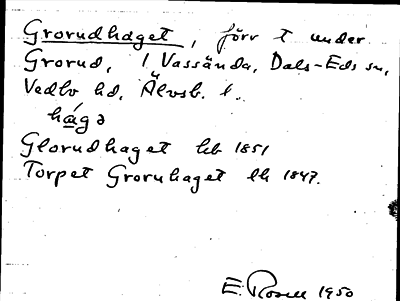 Grorudhaget, förr t under
Grorud, 1 Vassända, Dals-Eds sn,
Vedbo hd, Älvsb. l.
hágə
Glorudhaget hb 1851
Torpet Groruhaget lh 1847.
E. Rosell 1950